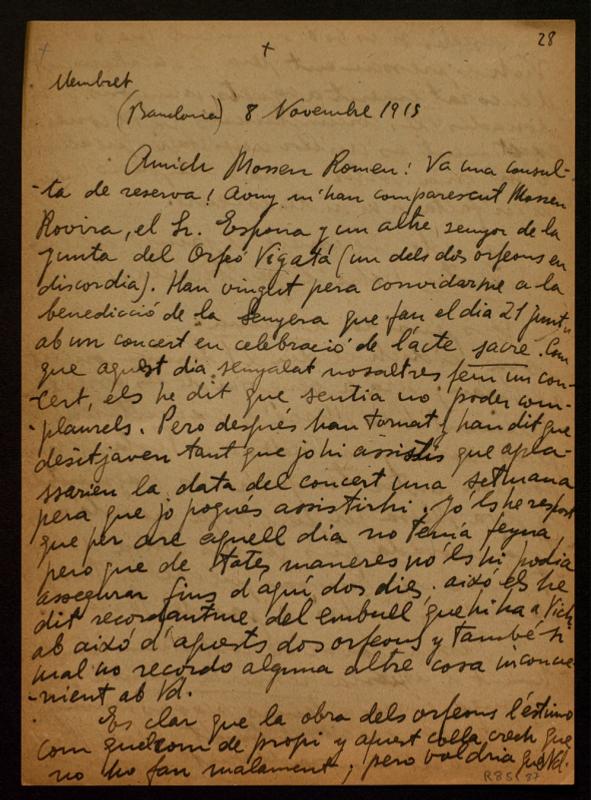 28
Membret
(Barcelona) 8 Novembre 1915
Amich Mossen Romeu: Va una consul-
ta de reserva! Avuy m'han comparescut Mossen
Rovira, el Sr. Espona y un altre senyor de la
junta del Orfeó Vigatá (un dels dos orfeons en
discordia). Han vingut pera convidarme a la
benedicció de la Senyera que fan el dia 21 junt
ab un concert en celebració de l'acte sacre. Com
que aquest dia senyalat nosaltres fem un con-
cert, els he dit que sentia no poder com-
plaurels. Pero després han tornat y han dit que
desitjaven tant que jo hi assistís que apla-
ssarien la data del concert una setmana
pera que jo pogués assistirhi. Jo 'ls he respost
que per are aquell dia no tenía feyna,
pero que de totes maneres no 'ls hi podia
assegurar fins d'aquí dos dies. aixó els he
dit recordantme del embull que hi ha a Vich
ab aixó d'aquests dos orfeons y també si
mal no recordo alguna altre cosa inconve-
nient ab Vd.
Es clar que la obra dels orfeons l'estimo
com quelcom de propi y aquest colla crech que
no ho fan malament; pero voldria que Vd.
R85/87